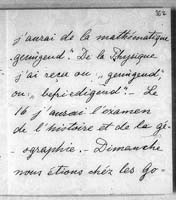 362
j'aurai de la mathématique
„genügend." De la Physique
j'ai reçu ou: „genügend"
ou: „befriedigend". Le
16 j'aurai l'examen
de l'histoire et de la gé-
ographie. - Demanche
nous étions chéz les Go-